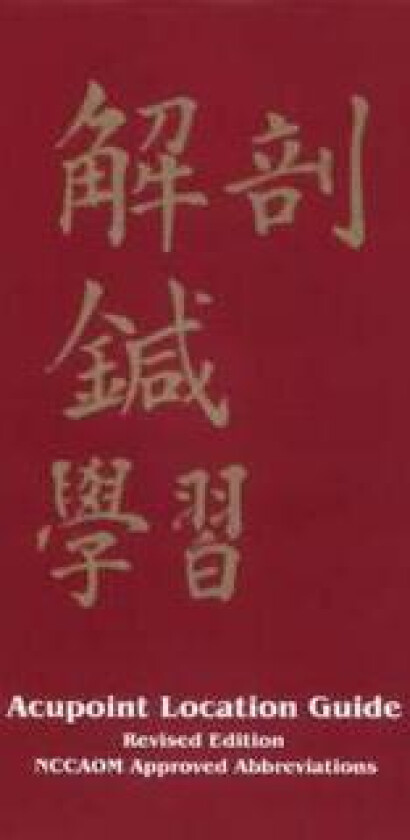 解剖
鍼
學習
Acupoint Location Guide
Revised Edition
NCCAOM Approved Abbreviations